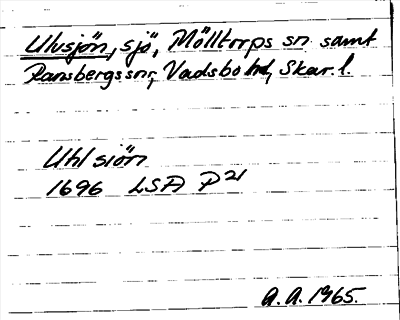 Ulvsjön, sjö, Mölltorps sn. samt
Ransbergs sn, Vadsbo hd, Skar. l.
Uhl siön
1696 LSA P 21
A. A. 1965.